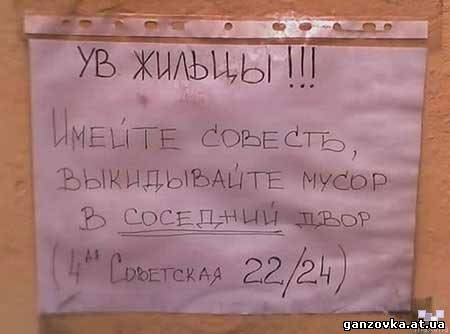 УВ ЖИЛЬЦЫ!!!
ИМЕЙТЕ СОВЕСТЬ,
ВЫКИДЫВАЙТЕ МУСОР
В СОСЕДНИЙ ДВОР
(4ая СОВЕТСКАЯ 22/24)
ganzovka.at.ua